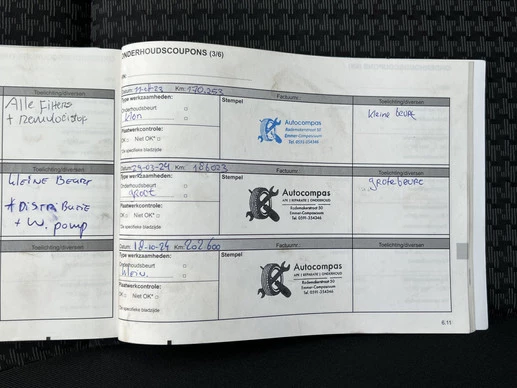 Toelichting/diversen
Alle Filters
+ remvloeistof
Toelichting/diversen
kleine Beurt
* Distributie
+ w. pomp
Toelichting/diversen
ONDERHOUDSCOUPONS (3/6)
Datum: Km: 170.253
Type werkzaamheden:
Onderhoudsbeurt
klein
Plaatwerkcontrole:
OK Niet OK*
*Zie specifieke bladzijde
Stempel
Factuurnr.
Autocompas
Emmer-Compascuum
Toelichting/diversen
kleine beurt
Datum: 29-03-24 Km:
Type werkzaamheden:
Onderhoudsbeurt
groot
Plaatwerkcontrole:
OK Niet OK*
*Zie specifieke bladzijde
Stempel
Factuurnr.
Autocompas
APK | REPARATIE | ONDERHOUD
Emmer-Compascuum
Toelichting/diversen
grote beurt
Datum: 18-10-24 Km: 202600
Type werkzaamheden:
Onderhoudsbeurt
klein
Plaatwerkcontrole:
OK Niet OK*
*Zie specifieke bladzijde
Stempel
Factuurnr.
Autocompas
APK | REPARATIE | ONDERHOUD
Emmer-Compascuum
Toelichting/diversen
6.11